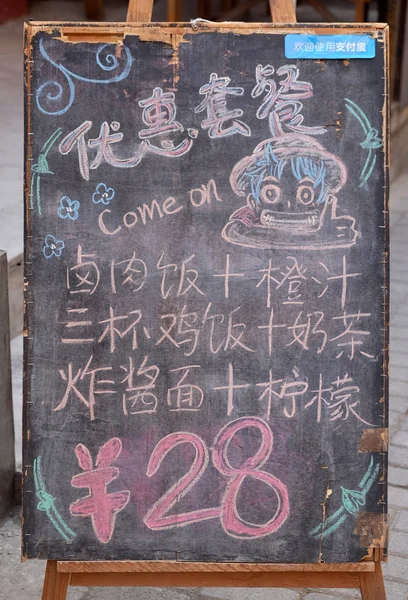 欢迎使用支付宝
优惠套餐
Come on
卤肉饭+橙汁
三杯鸡饭+奶茶
炸酱面+柠檬
¥28